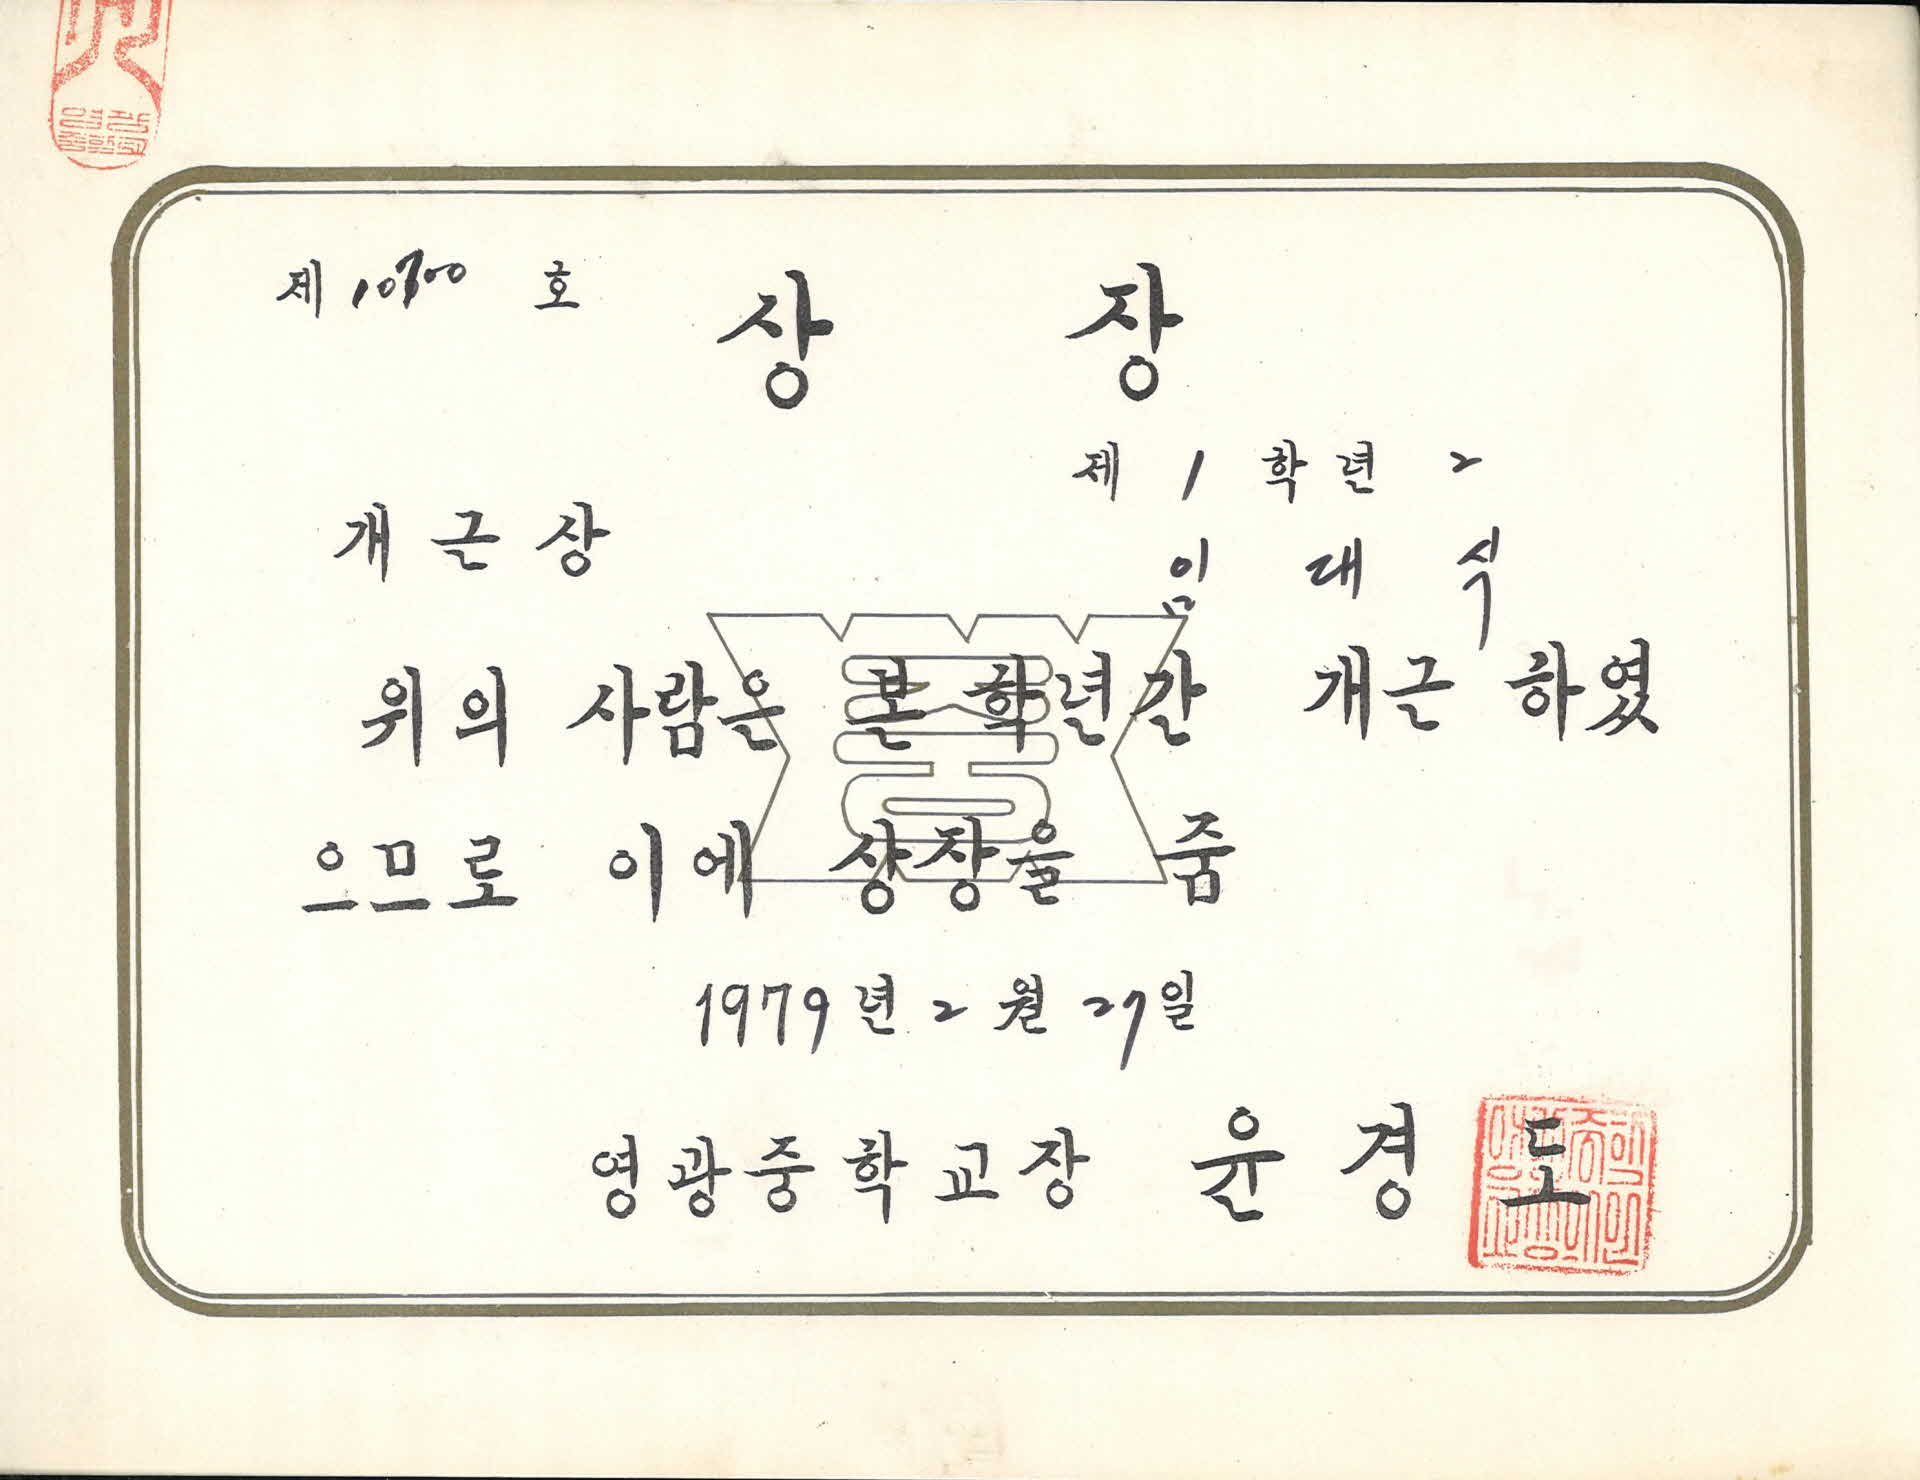 제 10700 호
상 장
제 1 학년 2
개근상
임 대 식
위의 사람은 본 학년간 개근 하였
으므로 이에 상장을 줌
1979년 2월 27일
영광중학교장 윤경도